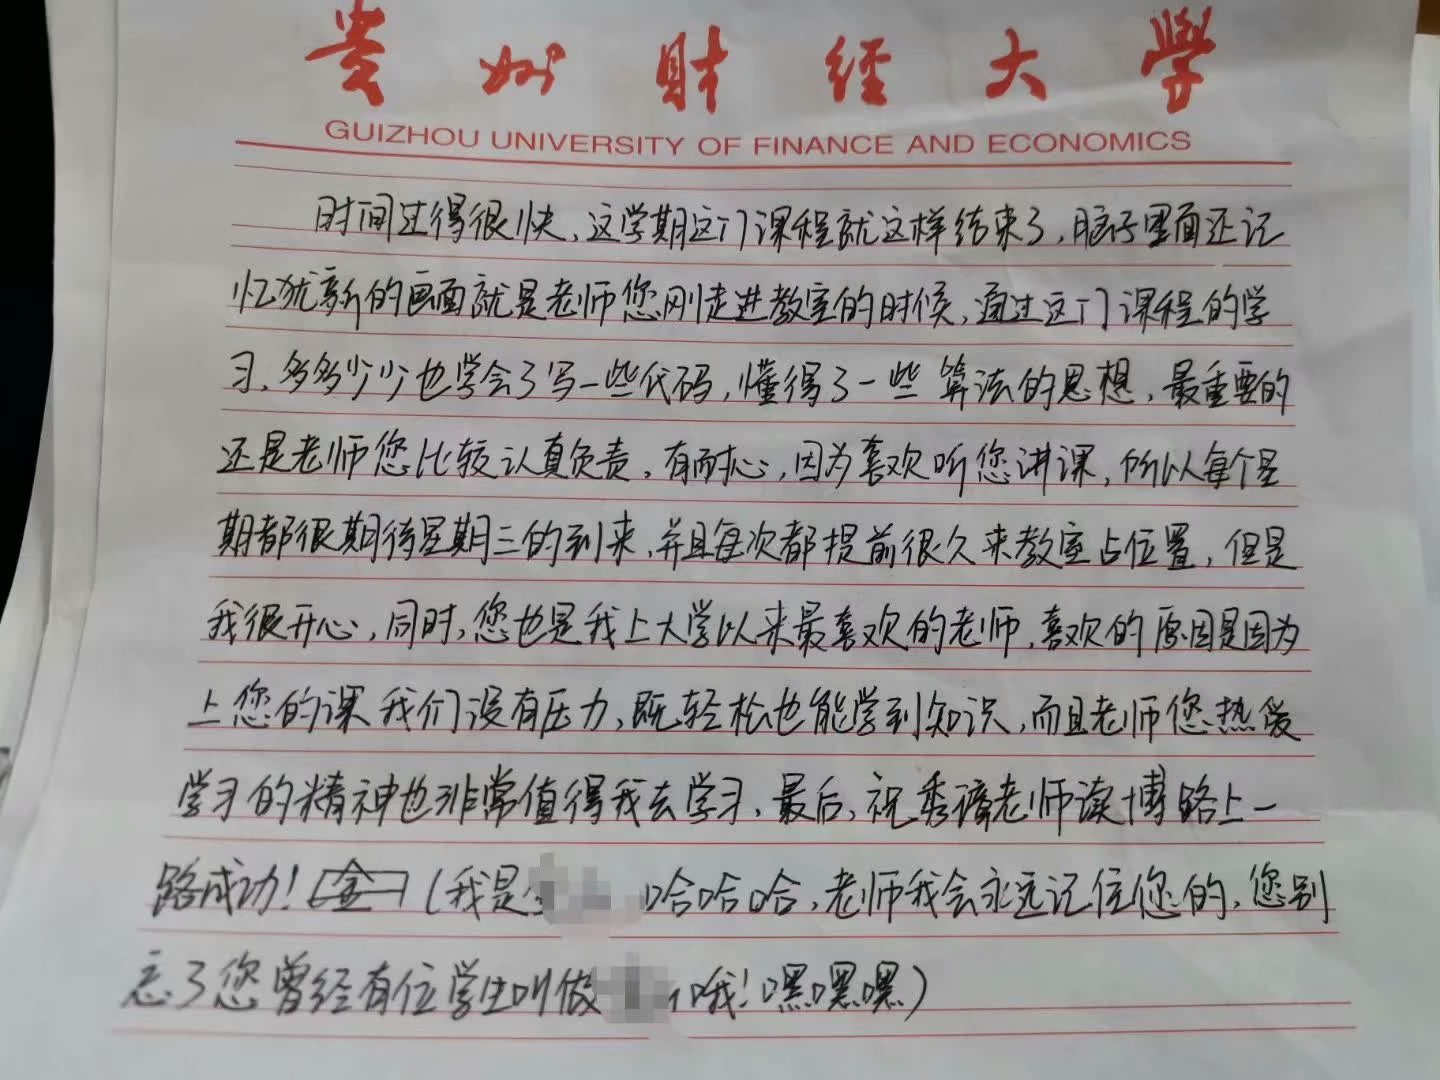 贵州财经大学
GUIZHOU UNIVERSITY OF FINANCE AND ECONOMICS
时间过得很快、这学期这门课程就这样结束了，脑子里面还记
忆犹新的画面就是老师您刚走进教室的时候，通过这门课程的学
习、多多少少也学会了写一些代码，懂得了一些算法的思想，最重要的
还是老师您比较认真负责，有耐心，因为喜欢听您讲课，所以每个星
期都很期待星期三的到来，并且每次都提前很久来教室占位置，但是
我很开心，同时，您也是我上大学以来最喜欢的老师，喜欢的原因是因为
上您的课我们没有压力，既轻松也能学到知识，而且老师您热爱
学习的精神也非常值得我去学习，最后，祝秀璋老师读博路上一
路成功！（我是 哈哈哈，老师我会永远记住您的，您别
忘了您曾经有位学生叫做 哦！嘿嘿嘿）